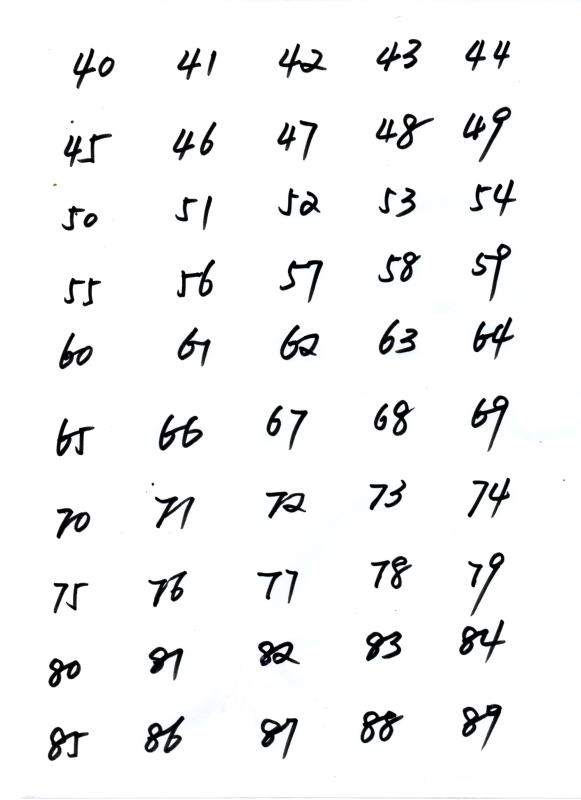 40 41 42 43 44
45 46 47 48 49
50 51 52 53 54
55 56 57 58 59
60 61 62 63 64
65 66 67 68 69
70 71 72 73 74
75 76 77 78 79
80 81 82 83 84
85 86 87 88 89